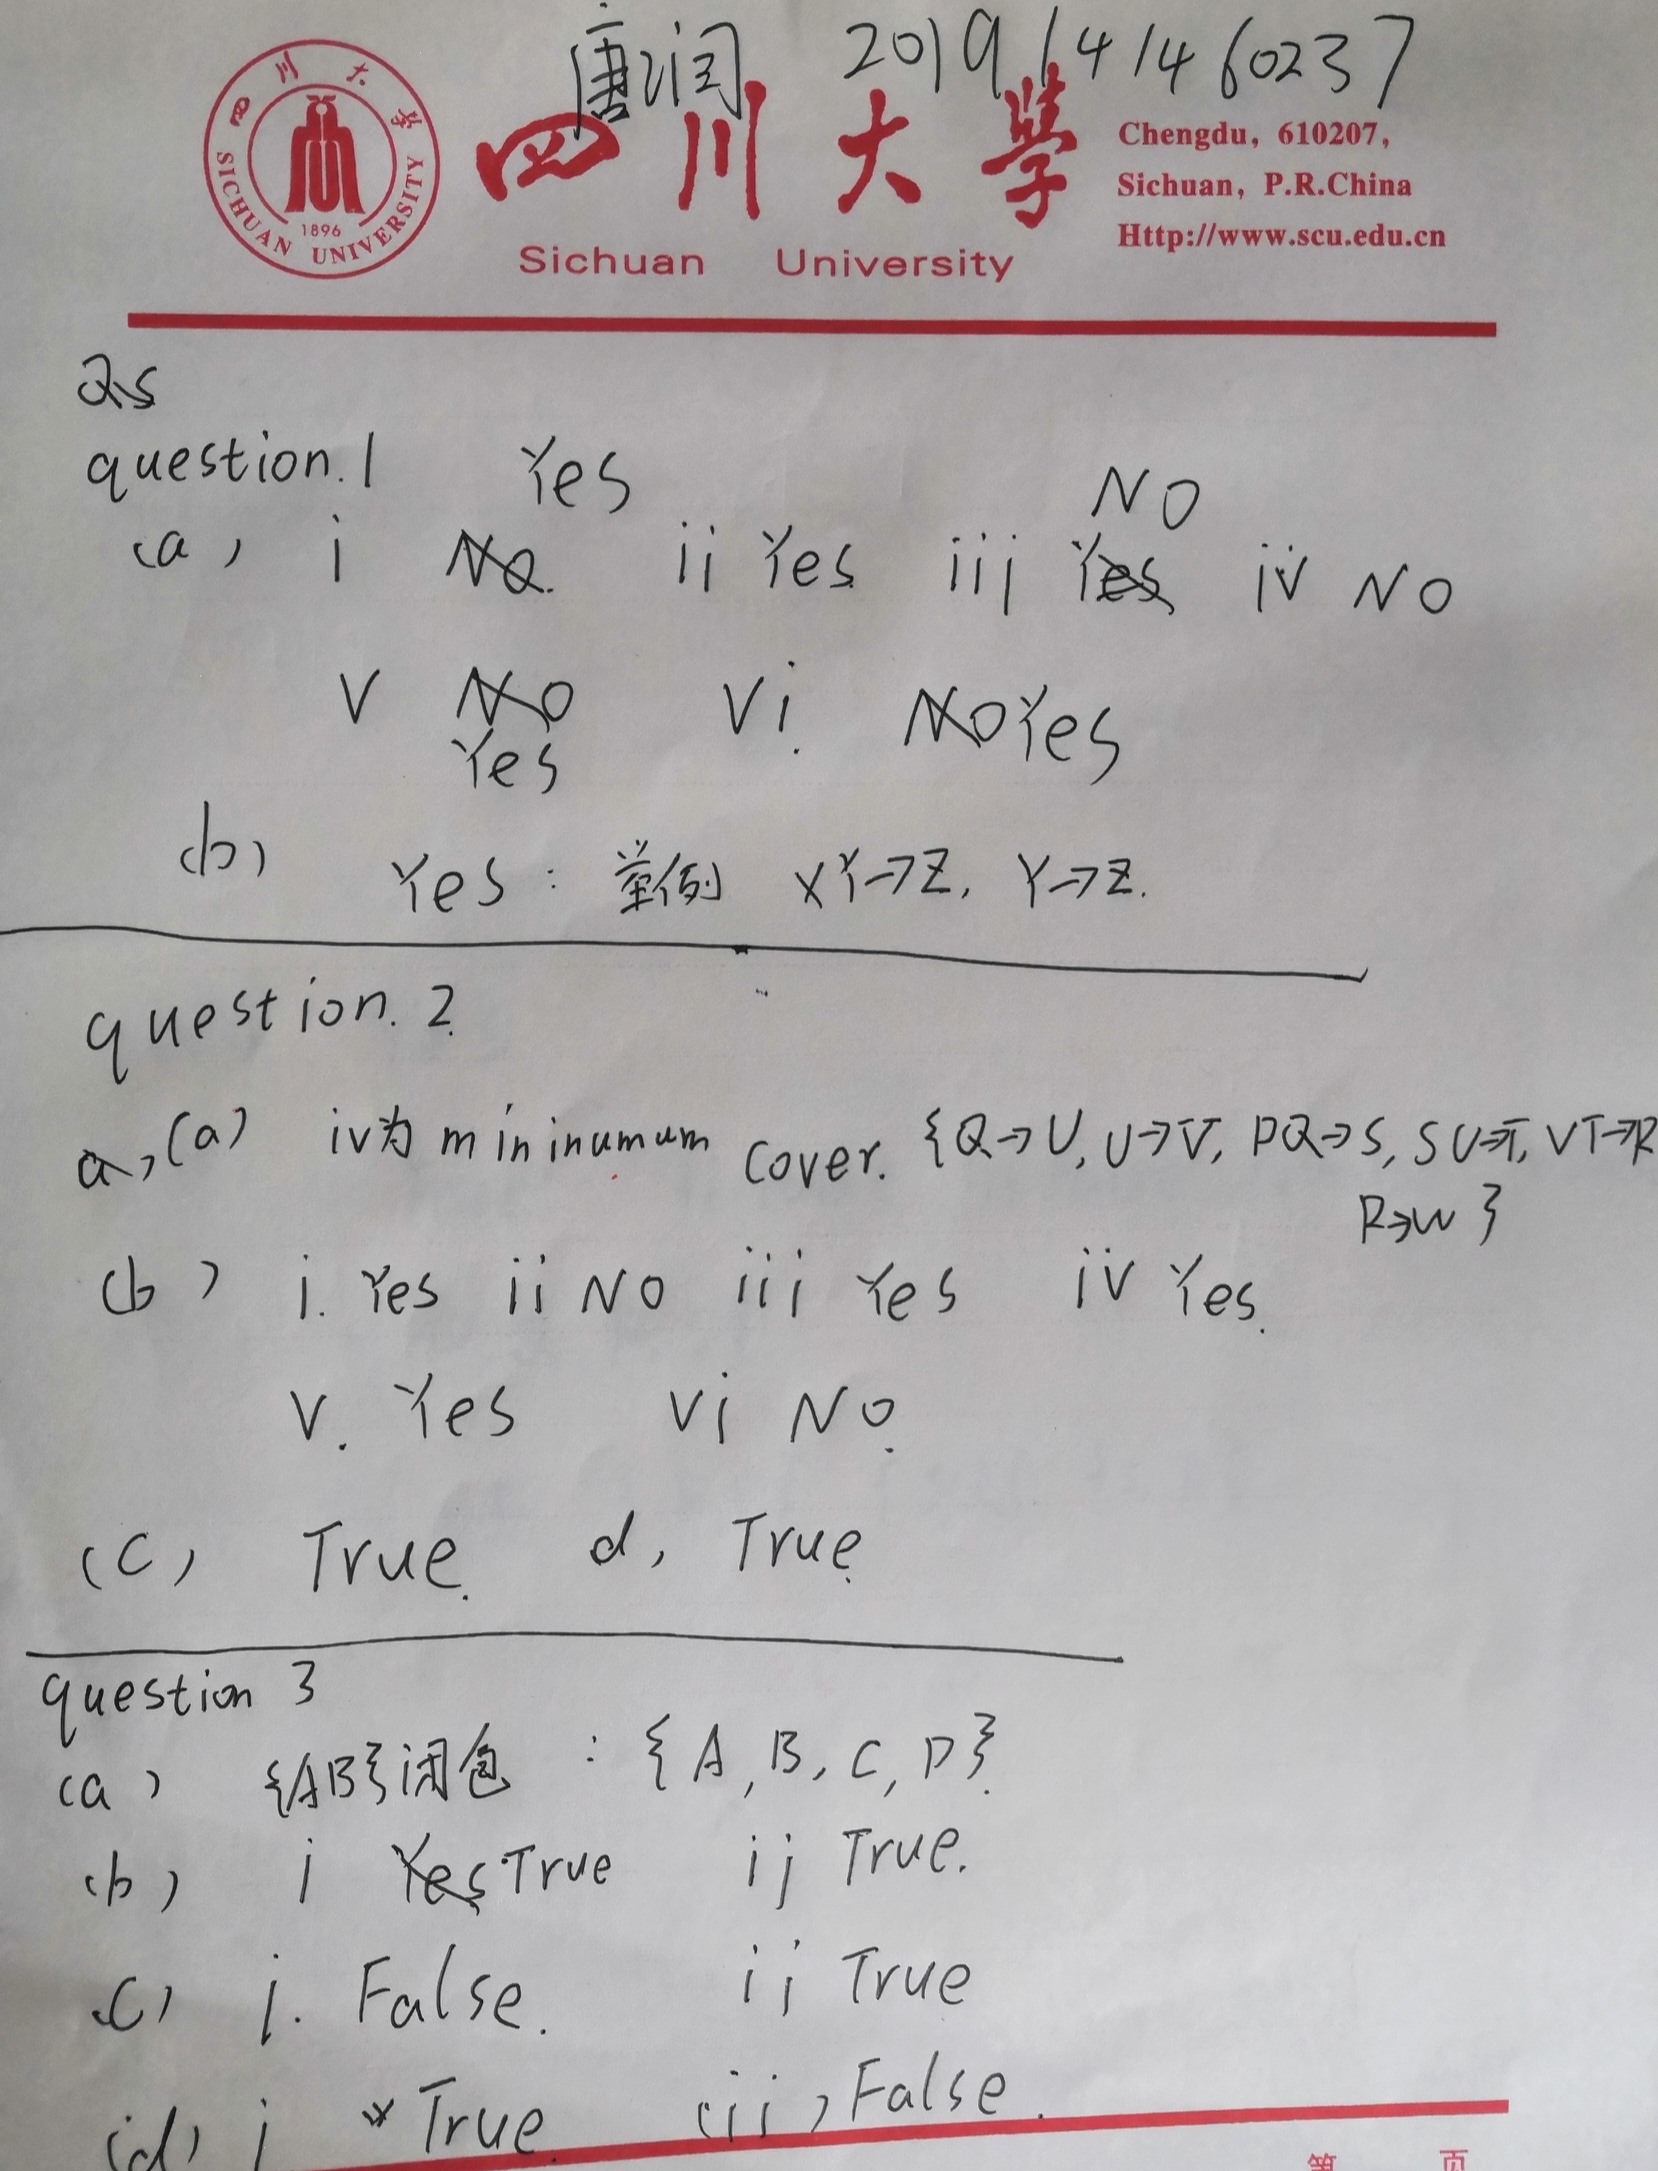 唐润 2019141460237
四川大学
SICHUAN UNIVERSITY
1896
四川大學
Sichuan University
Chengdu, 610207,
Sichuan, P.R.China
Http://www.scu.edu.cn
Qs
question.1 Yes NO
(a) i No. ii Yes iii Yes iv NO
v No vi. No Yes
Yes
(b) Yes: 举例 XY→Z, Y→Z.
question.2
a, (a) iv为 mininumum cover. {Q→U, U→V, PQ→S, SU→T, VT→R
R→W}
(b) i. Yes ii NO iii Yes iv Yes.
v. Yes vi No.
(c) True. d, True.
question 3
(a) {AB}闭包 : {A, B, C, D}.
(b) i Yes True ii True.
c) i. False. ii True
(d) i True (ii) False.
第 页